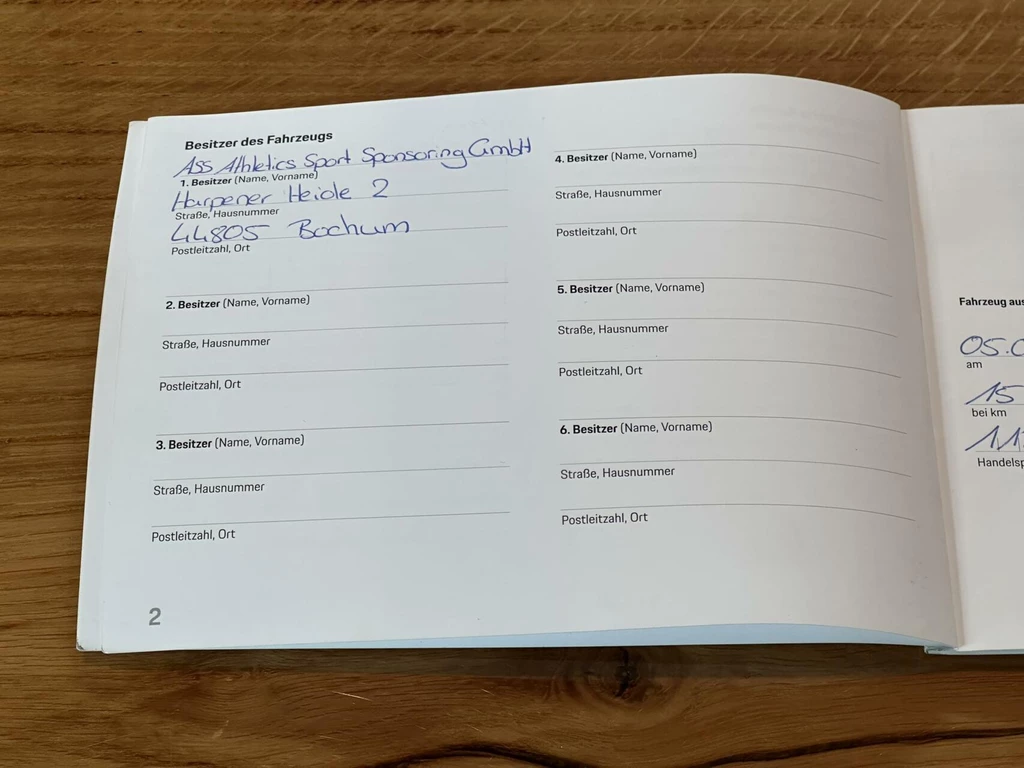 Besitzer des Fahrzeugs
Ass Athletics Sport Sponsoring GmbH
1. Besitzer (Name, Vorname)
Harpener Heide 2
Straße, Hausnummer
44805 Bochum
Postleitzahl, Ort
2. Besitzer (Name, Vorname)
Straße, Hausnummer
Postleitzahl, Ort
3. Besitzer (Name, Vorname)
Straße, Hausnummer
Postleitzahl, Ort
2
4. Besitzer (Name, Vorname)
Straße, Hausnummer
Postleitzahl, Ort
5. Besitzer (Name, Vorname)
Straße, Hausnummer
Postleitzahl, Ort
6. Besitzer (Name, Vorname)
Straße, Hausnummer
Postleitzahl, Ort
Fahrzeug aus
05.0
am
15
bei km
11
Handelsp